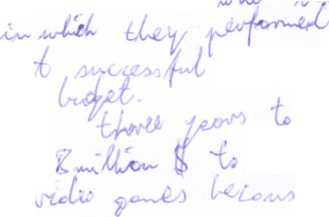 in which they performed
t successful
budget.
three years to
8 million $ to
vidio games becaus